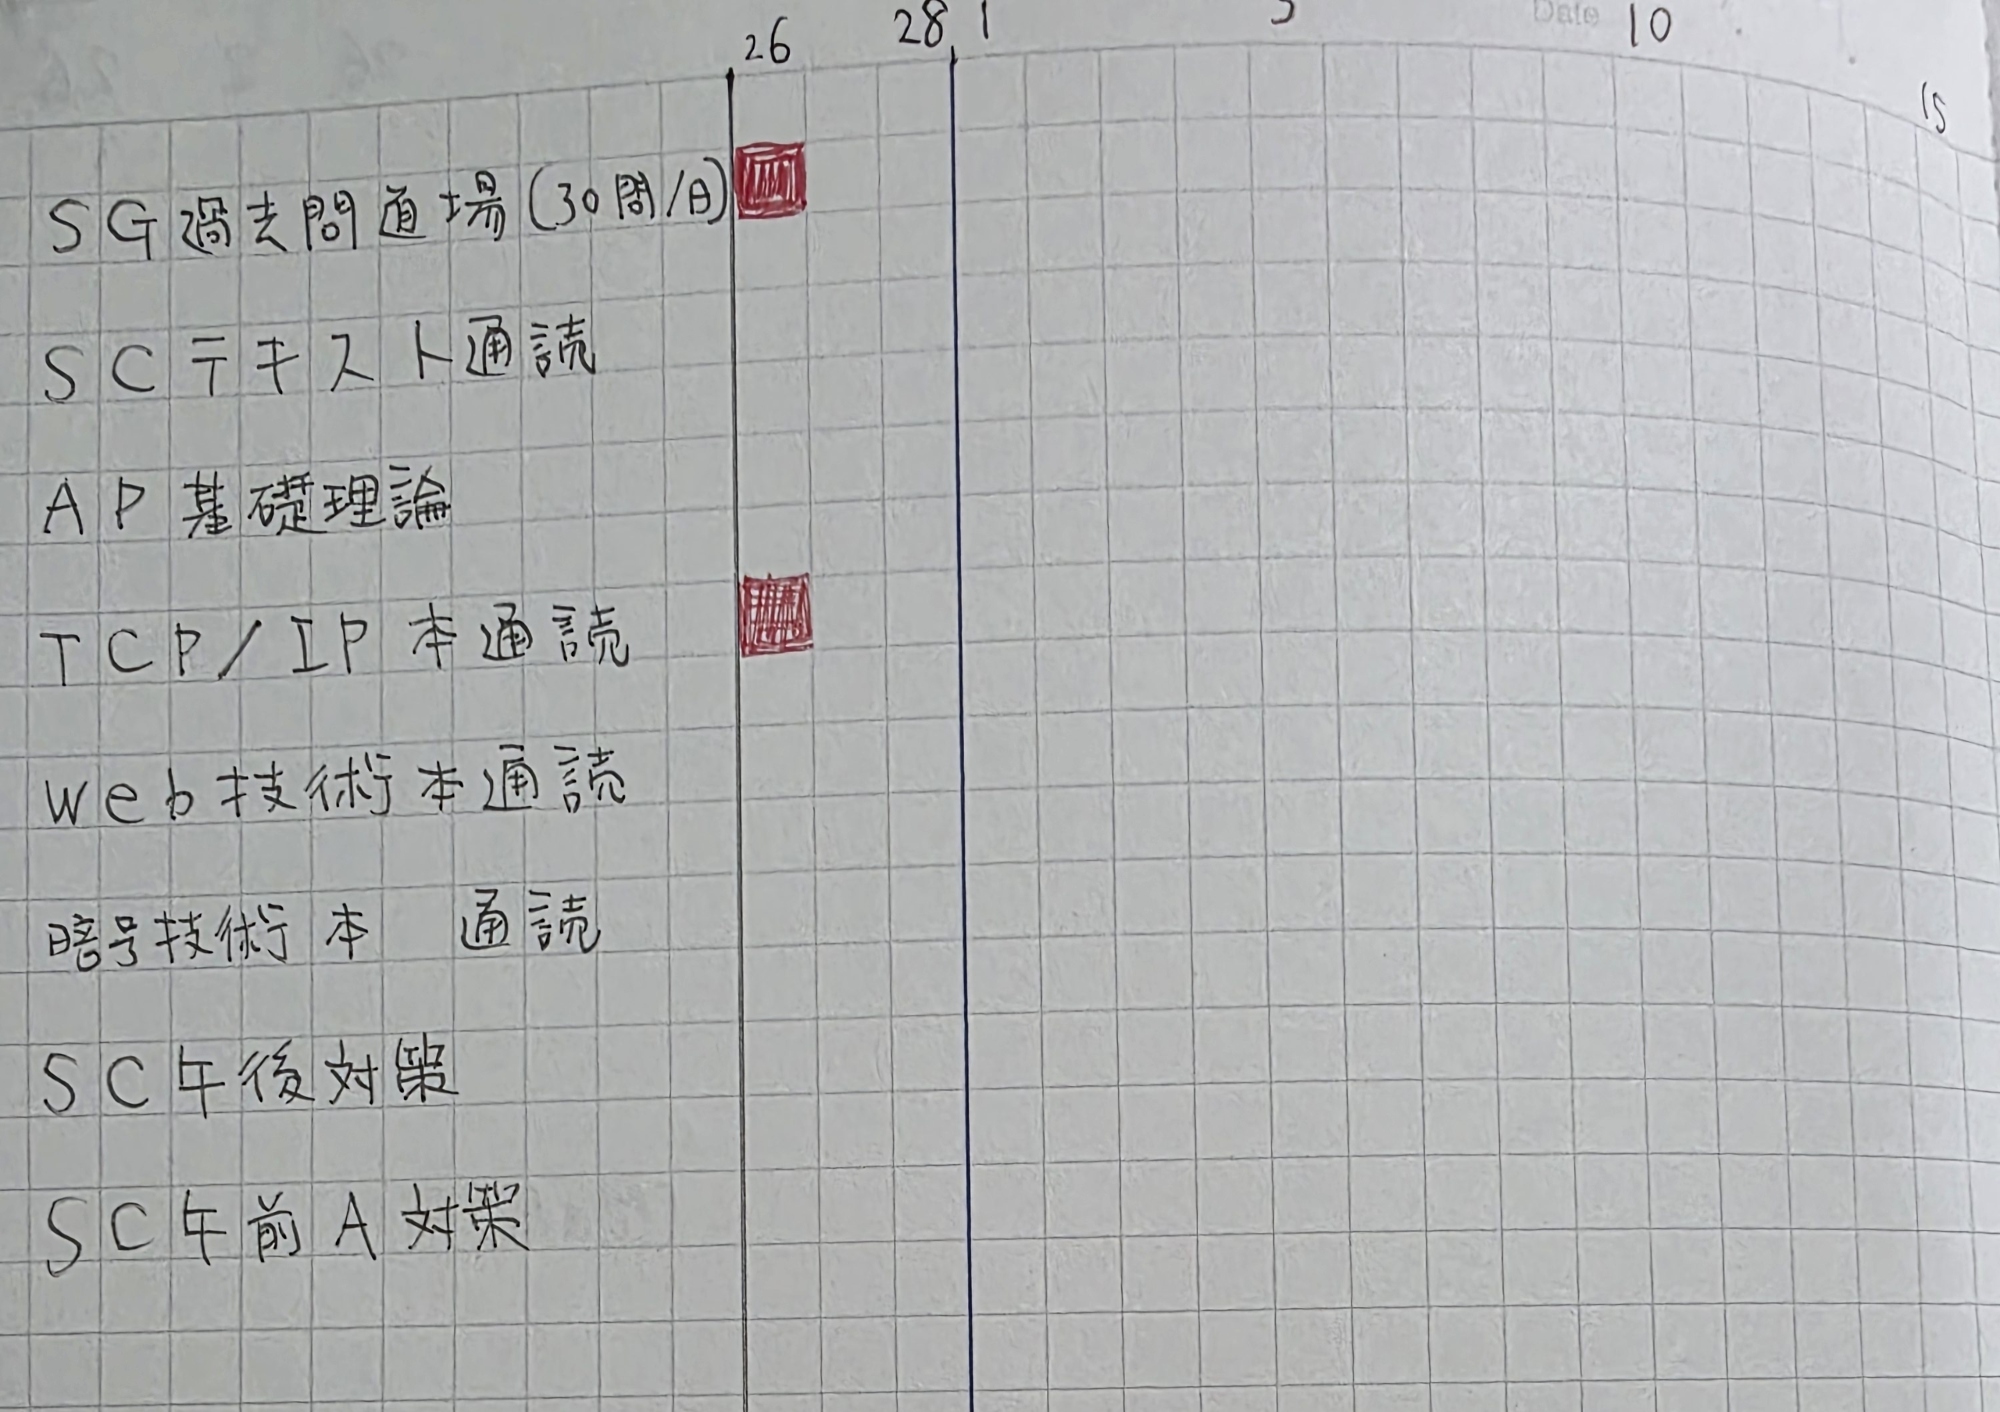 26 28 1 5 Date 10
15
SG過去問道場(30問/日)
SCテキスト通読
AP基礎理論
TCP/IP本通読
Web技術本通読
暗号技術本 通読
SC午後対策
SC午前A対策